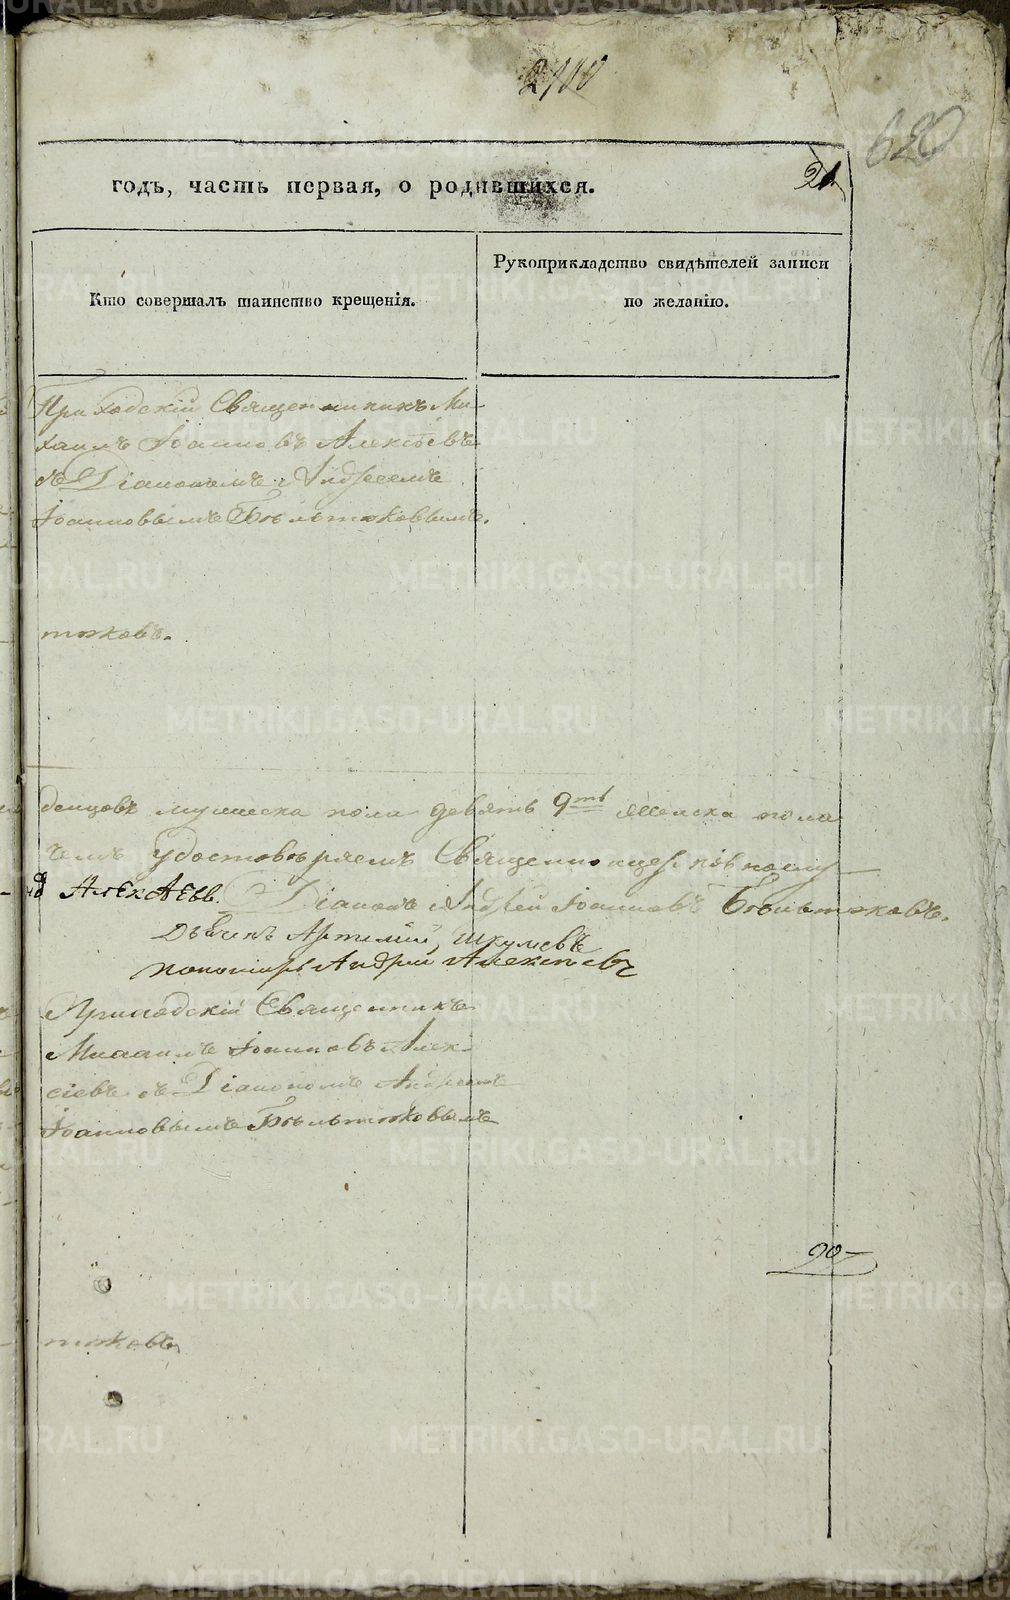 620
21
годъ, часть первая, о родившихся.
Кто совершалъ таинство крещенія.
Рукоприкладство свидѣтелей записи
по желанію.
Приходскій Священникъ Ми-
хаилъ Іоанновъ Алексѣевъ
съ Діакономъ Андреемъ
Іоанновымъ Бѣльтюковымъ.
тюковъ.
денцовъ мужеска пола девять 9ть женска пола
чемъ удостовѣряемъ Священно
Алексѣевъ. Діаконъ Андрей Іоанновъ Бѣльтюковъ.
Дьячекъ Артемій
Пономарь Андрей Алексѣевъ
Приходскій Священникъ
Михаилъ Іоанновъ Алек-
сіевъ съ Діакономъ Андреемъ
Іоанновымъ Бѣльтюковымъ
90
тюковъ
METRIKI.GASO-URAL.RU